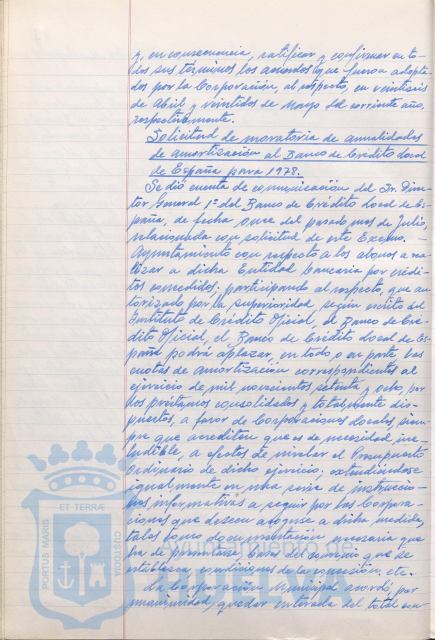 y, en consecuencia, ratificar y confirmar en to-
dos sus términos los acuerdos que fueron adopta-
dos por la Corporación, al respecto, en veintiseis
de Abril y veintidos de Mayo del corriente año,
respectivamente.
Solicitud de moratoria de anualidades
de amortización al Banco de Crédito Local
de España para 1978.
Se dió cuenta de comunicación del Sr. Direc-
tor General 1º del Banco de Crédito Local de Es-
paña, de fecha once del pasado mes de Julio,
relacionada con solicitud de este Excmo.
Ayuntamiento con respecto a los abonos a rea-
lizar a dicha Entidad bancaria por crédi-
tos concedidos; participando al respecto, que au-
torizado por la superioridad según escrito del
Instituto de Crédito Oficial, el Banco de Cré-
dito Oficial, el Banco de Crédito Local de Es-
paña podrá aplazar, en todo o en parte, las
cuotas de amortización correspondientes al
ejercicio de mil novecientos setenta y ocho, por
los préstamos consolidados y totalmente dis-
puestos, a favor de Corporaciones Locales, siem-
pre que acrediten que es de necesidad ine-
ludible, a efectos de nivelar el Presupuesto
Ordinario de dicho ejercicio; extendiéndose
igualmente en una serie de instruccio-
nes informativas a seguir por las Corpora-
ciones que deseen acogerse a dicha medida,
tales como documentación necesaria que
ha de presentarse, base del convenio que se
establezca, condiciones de la concesión, etc.
La Corporación Municipal acordó, por
unanimidad, quedar enterada del total con-
PORTUS MARIS
ET TERRÆ
CUSTODIA
Ayuntamiento de
HUELVA